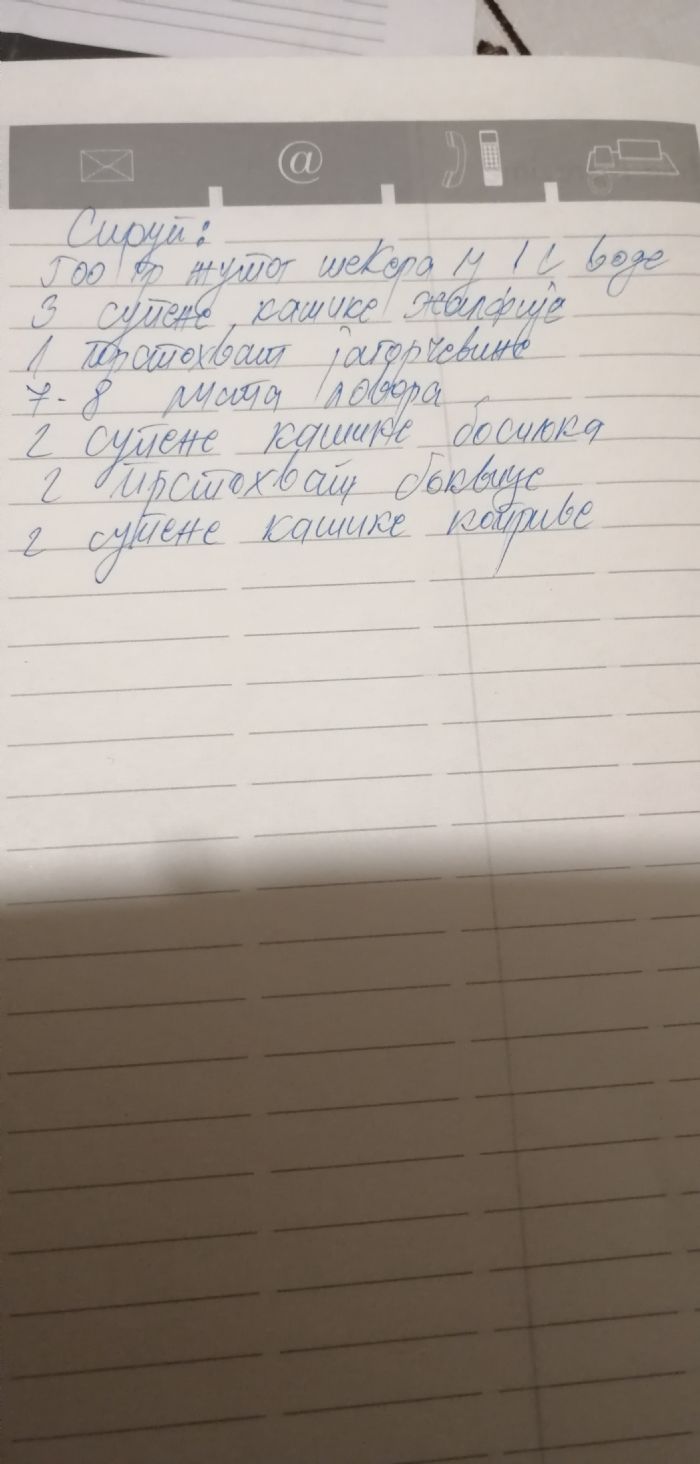 Сируп:
500 гр жутог шеКера у 1 L воде
3 супене кашике жалфије
1 прстохват јагорчевине
7-8 листа ловора
2 супене кашике босиока
2 прстохват боквице
2 супене кашике коприве
@